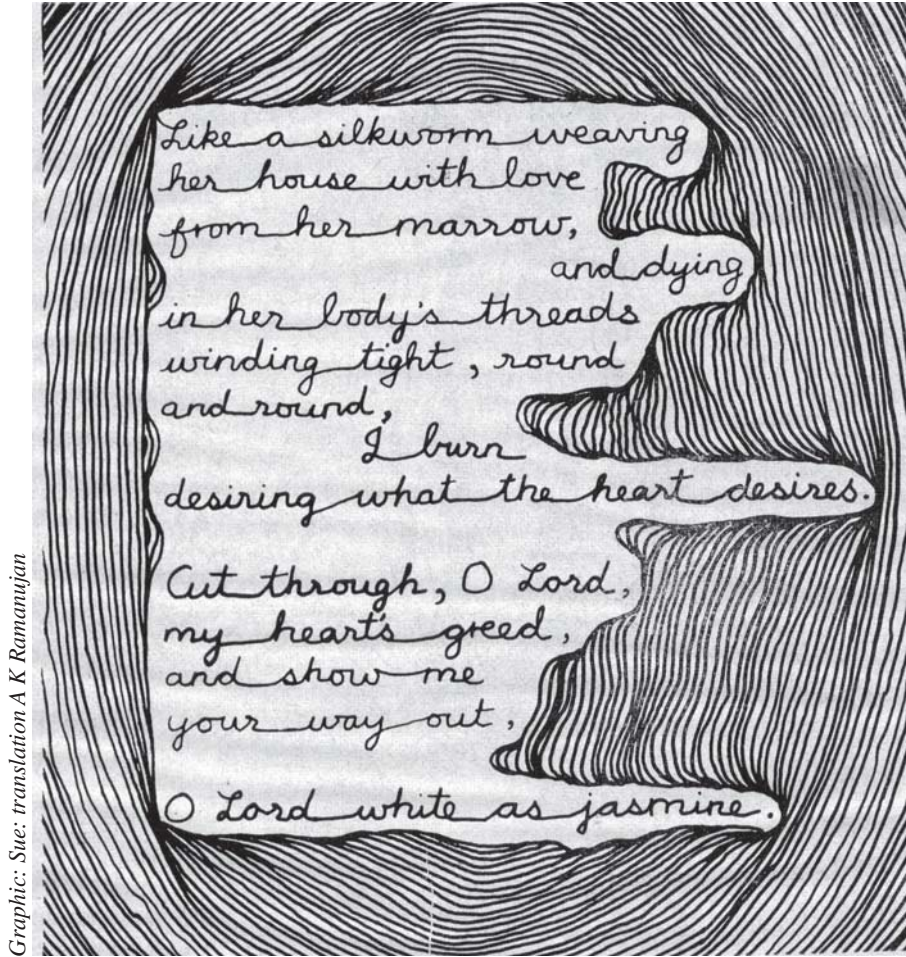 Like a silkworm weaving
her house with love
from her marrow,
and dying
in her body's threads
winding tight, round
and round,
I burn
desiring what the heart desires.
Cut through, O Lord,
my heart's greed,
and show me
your way out,
O Lord white as jasmine.
Graphic: Sue: translation A K Ramanujan